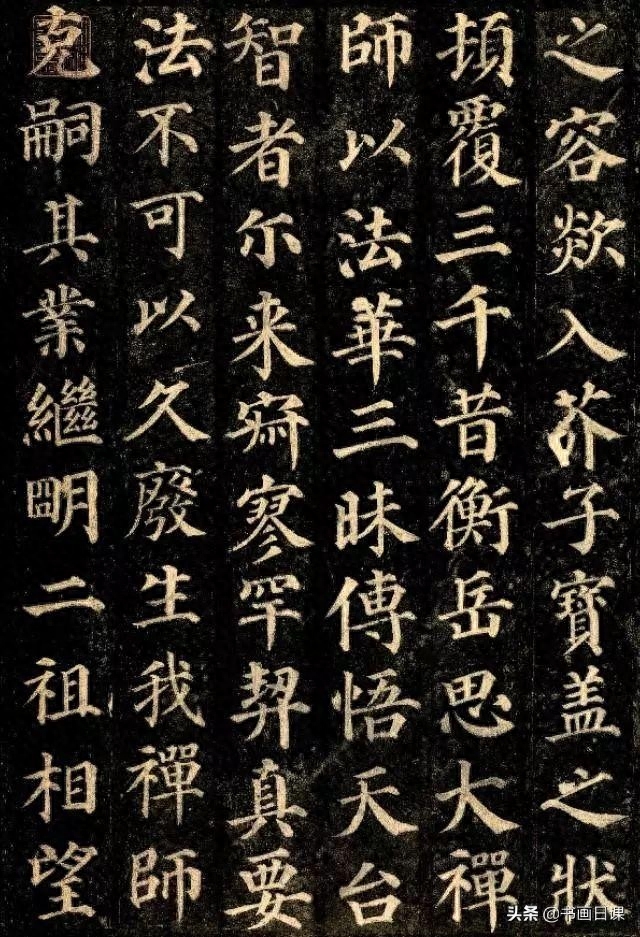 之容欻入芥子寶盖之狀
頃覆三千昔衡岳思大禪
師以法華三昧傳悟天台
智者尔来寂寥罕契真要
法不可以久廢生我禪師
克嗣其業繼明二祖相望
头条 @书画日课